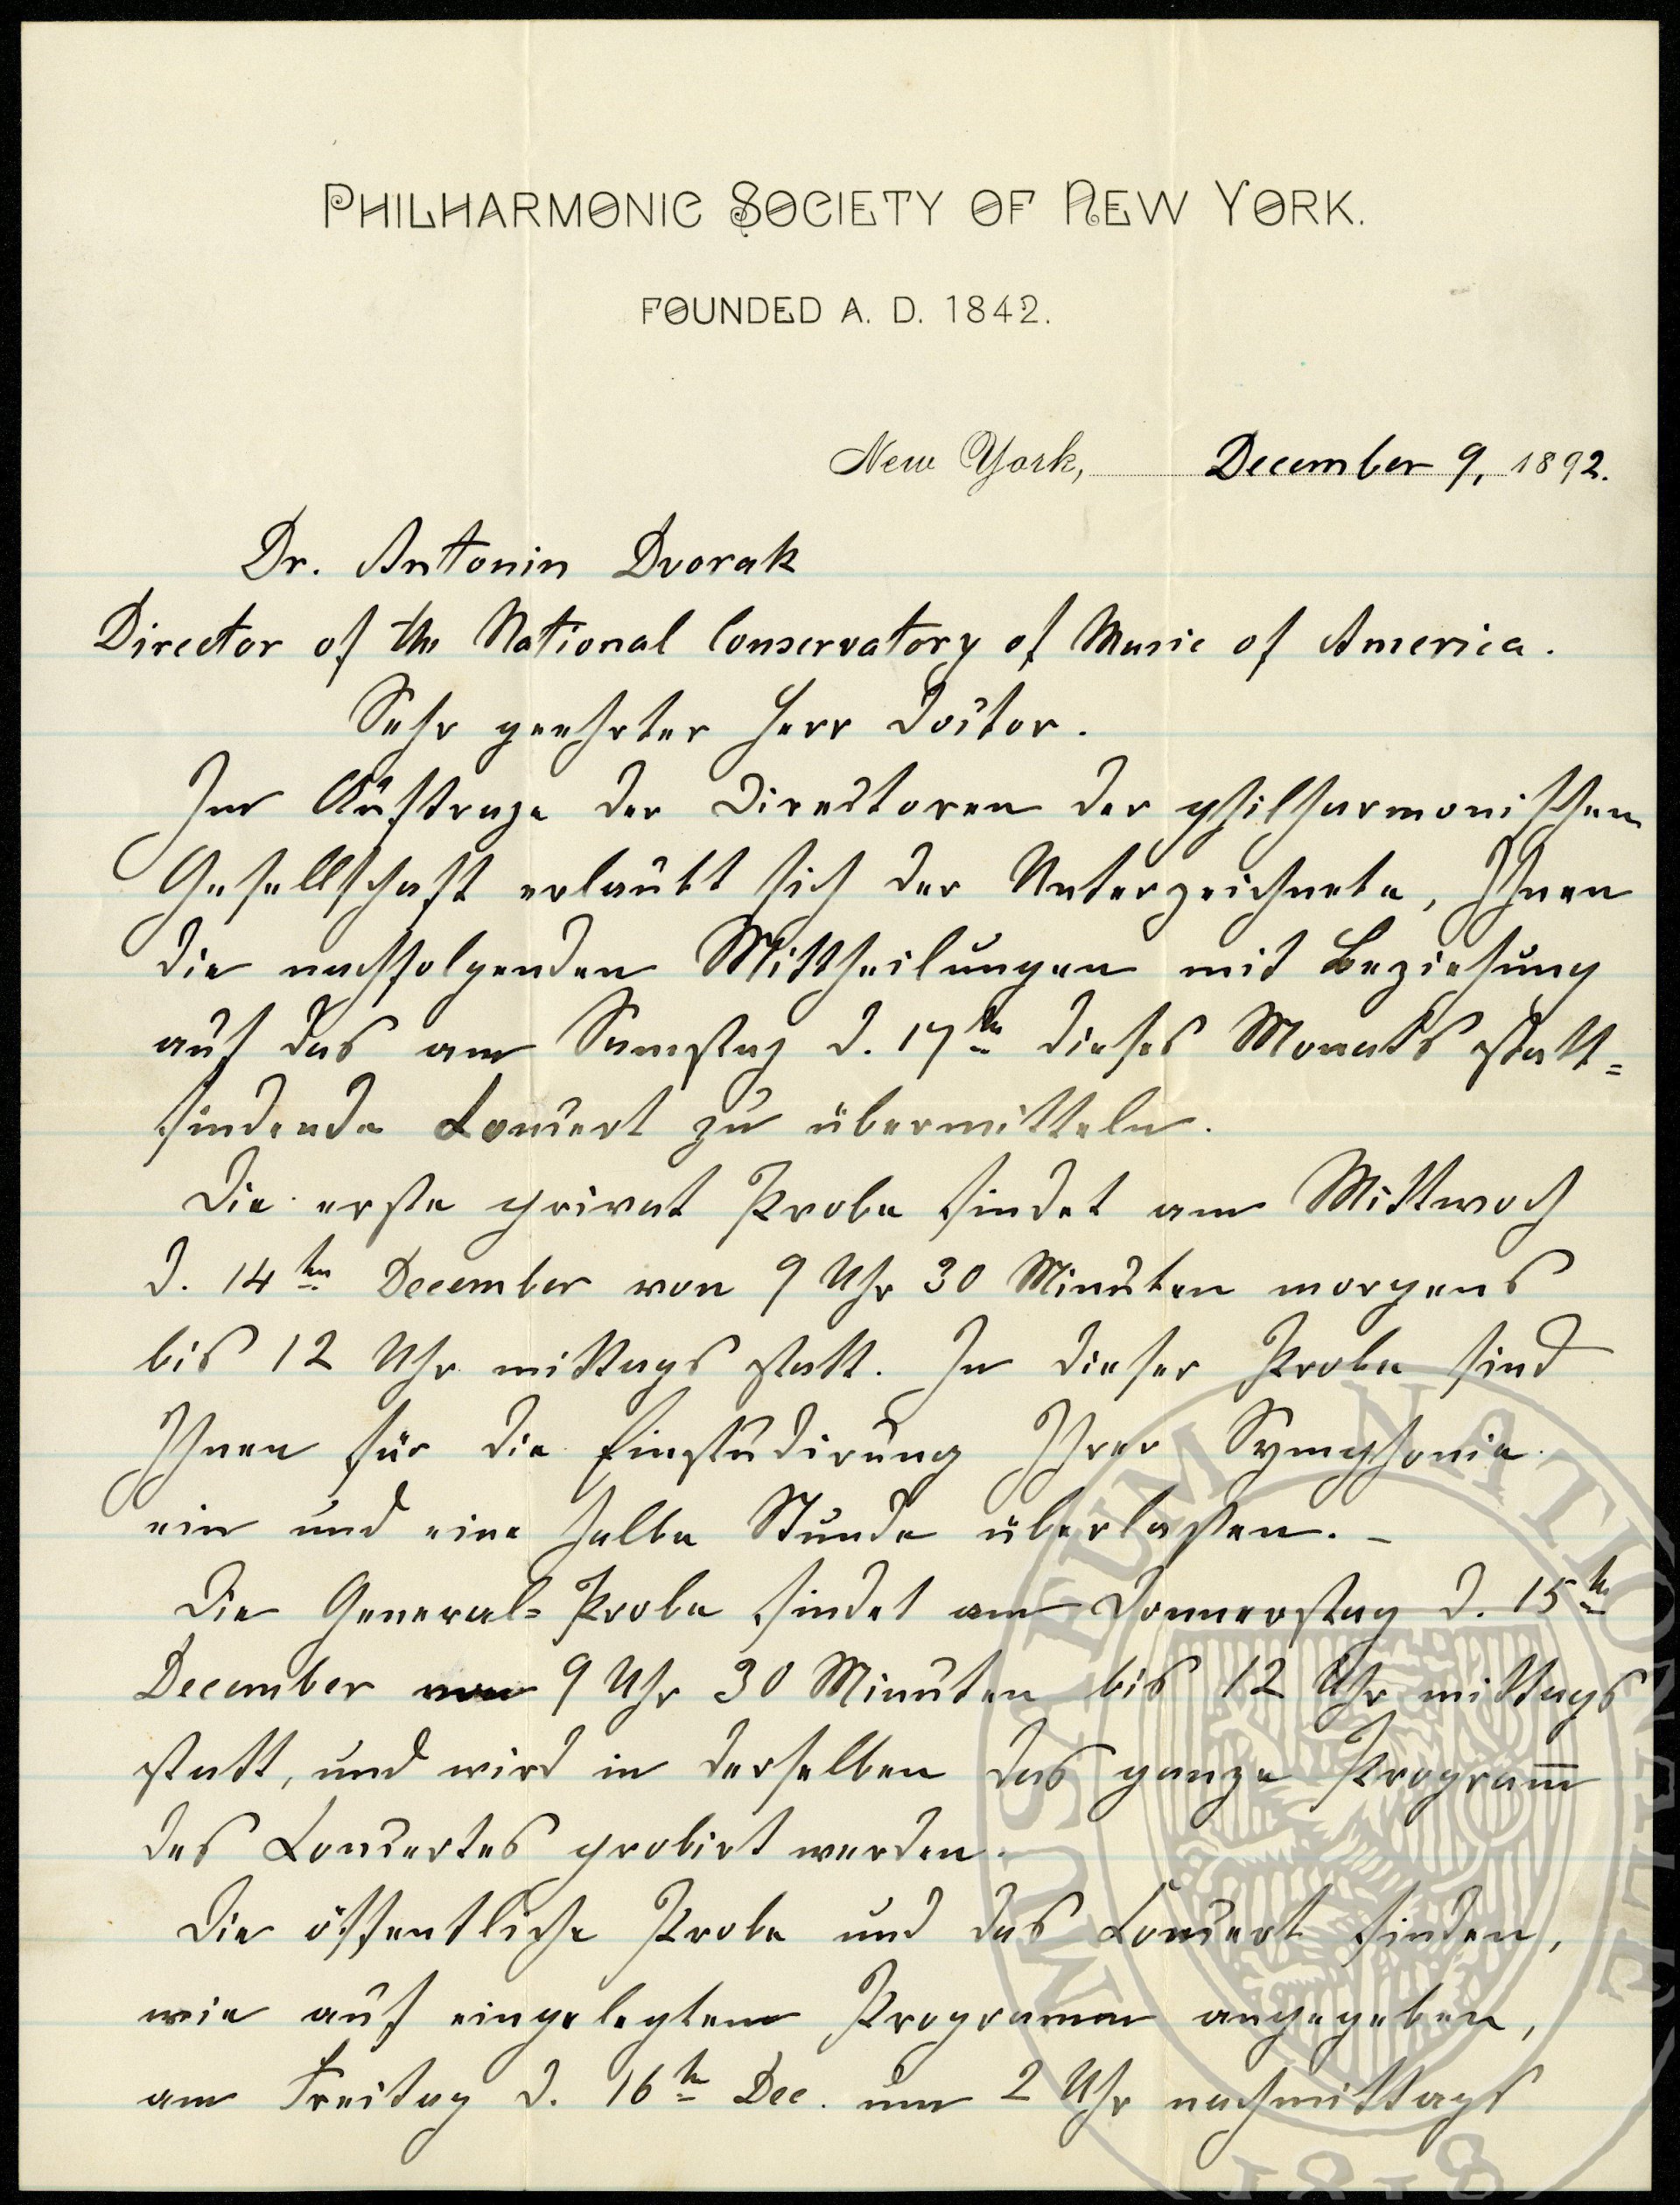 PHILHARMONIC SOCIETY OF NEW YORK.
FOUNDED A. D. 1842.
New York, December 9, 1892.
Dr. Antonin Dvorak
Director of the National Conservatory of Music of America.
Sehr geehrter Herr Doctor.
Im Auftrage der Directoren der philharmonischen
Gesellschaft erlaubt sich der Unterzeichnete, Ihnen
die nachfolgenden Mittheilungen mit Beziehung
auf das am Samstag d. 17ten dieses Monats statt=
findende Concert zu übermitteln.
Die erste privat Probe findet am Mittwoch
d. 14ten December von 9 Uhr 30 Minuten morgens
bis 12 Uhr mittags statt. In dieser Probe sind
Ihnen für die Einstudirung Ihrer Symphonie
ein und eine halbe Stunde überlassen. –
Die General= Probe findet am Donnerstag d. 15ten
December von 9 Uhr 30 Minuten bis 12 Uhr mittags
statt, und wird in derselben das ganze Program̅
des Concertes probirt werden.
Die öffentliche Probe und das Concert finden,
wie auf eingelegtem Programm angegeben,
am Freitag d. 16ten Dec. um 2 Uhr nachmittags
MUSEUM NATIONALE
1818